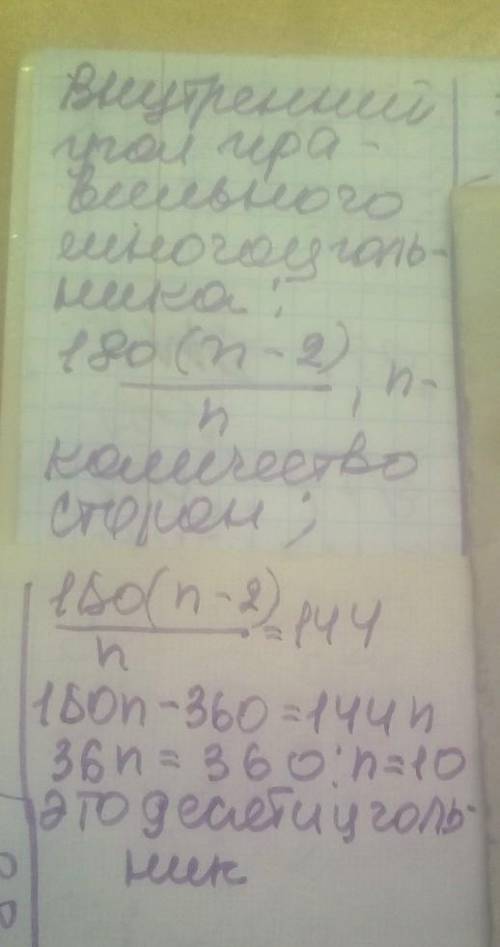 Внутренний
угол пра-
вильного
многоуголь-
ника:
180(n-2)
n
, n-
количество
сторон;
180(n-2)
n
=144
180n-360=144n
36n=360; n=10
это десятиуголь-
ник